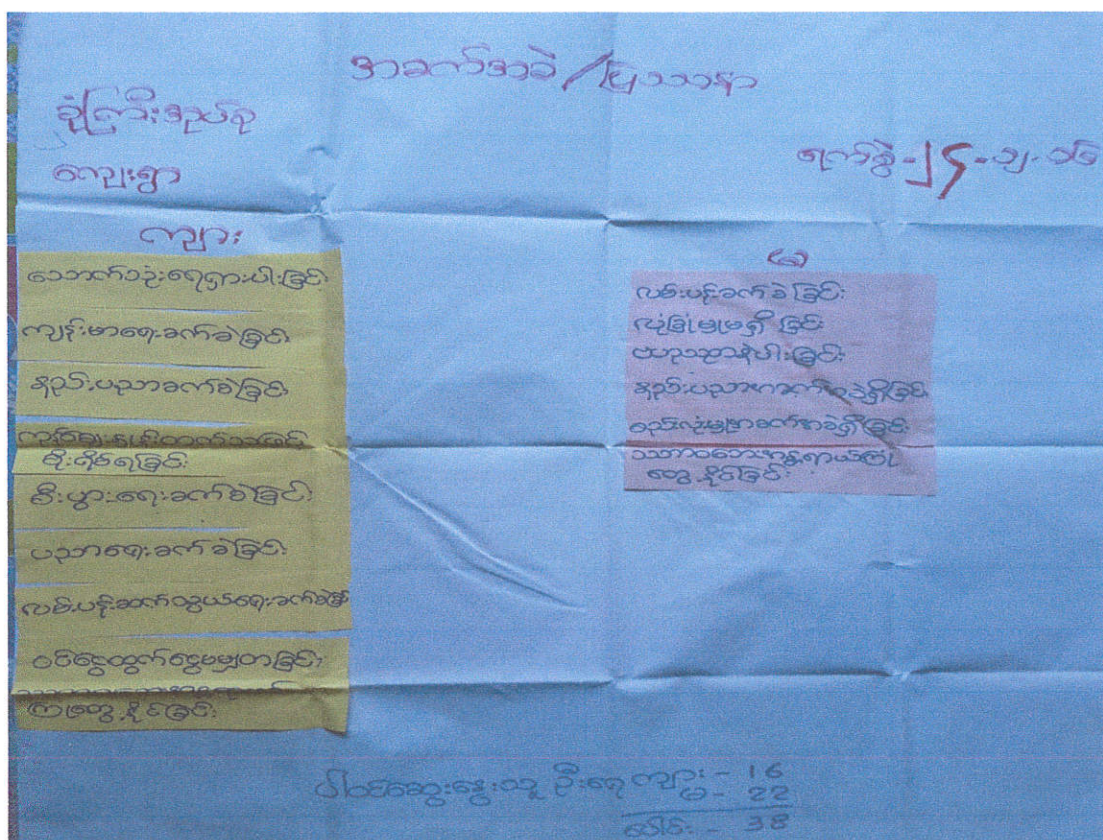 အခက်အခဲ/ပြဿနာ
ခုံကြီးအုပ်စု
ကျေးရွာ
ရက်စွဲ-၂၄-၁၂-၁၆
ကျား
သောက်သုံးရေရှားပါးခြင်း
ကျန်းမာရေးခက်ခဲခြင်း
နည်းပညာခက်ခဲခြင်း
စိုးရိမ်ရခြင်း
စီးပွားရေးခက်ခဲခြင်း
ပညာရေးခက်ခဲခြင်း
လမ်းပန်းဆက်သွယ်ရေးခက်ခဲခြင်း
ဝင်ငွေထွက်ငွေမမျှတခြင်း
ကြုံတွေ့နိုင်ခြင်း
မ
လမ်းပန်းခက်ခဲခြင်း
လုံခြုံမှုမရှိခြင်း
ဗဟုသုတနဲပါးခြင်း
နည်းပညာအခက်အခဲရှိခြင်း
စည်းလုံးမှုအခက်အခဲရှိခြင်း
သဘာဝဘေးအန္တရာယ်ကြုံ
တွေ့နိုင်ခြင်း
ပါဝင်ဆွေးနွေးသူ ဦးရေ ကျား - 16
မ - 22
ပေါင်း - 38